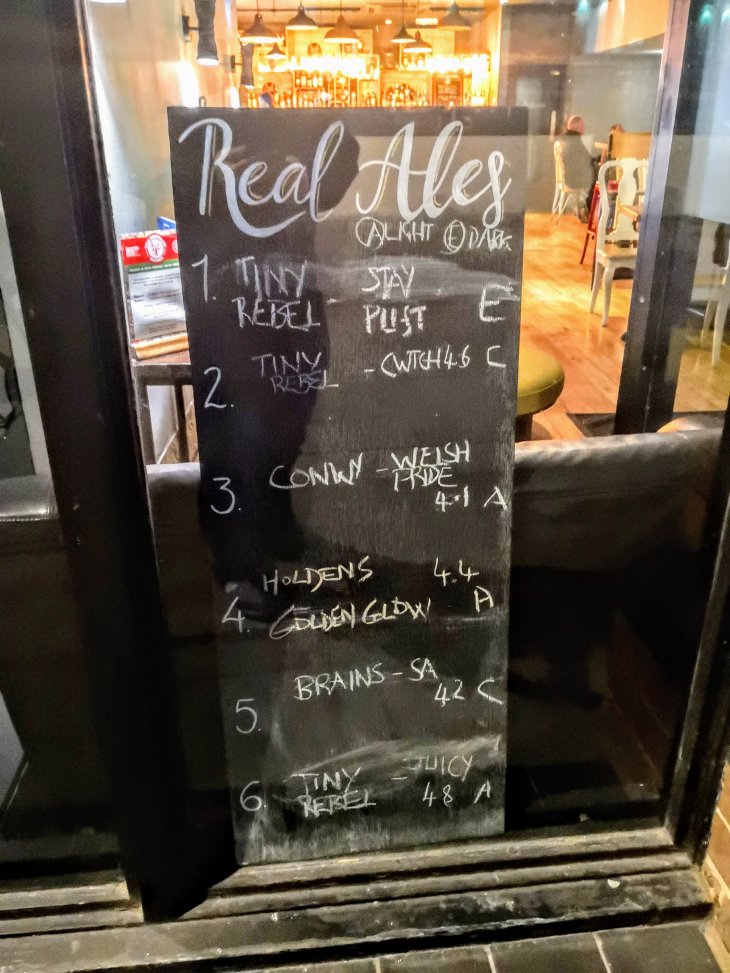 Real Ales
(A) LIGHT (E) DARK
1. TINY REBEL - STAY PUFT E
2. TINY REBEL - CWTCH 4.6 C
3. CONWY - WELSH PRIDE 4.1 A
4. HOLDENS 4.4
GOLDEN GLOW A
5. BRAINS - SA 4.2 C
6. TINY REBEL - JUICY 4.8 A